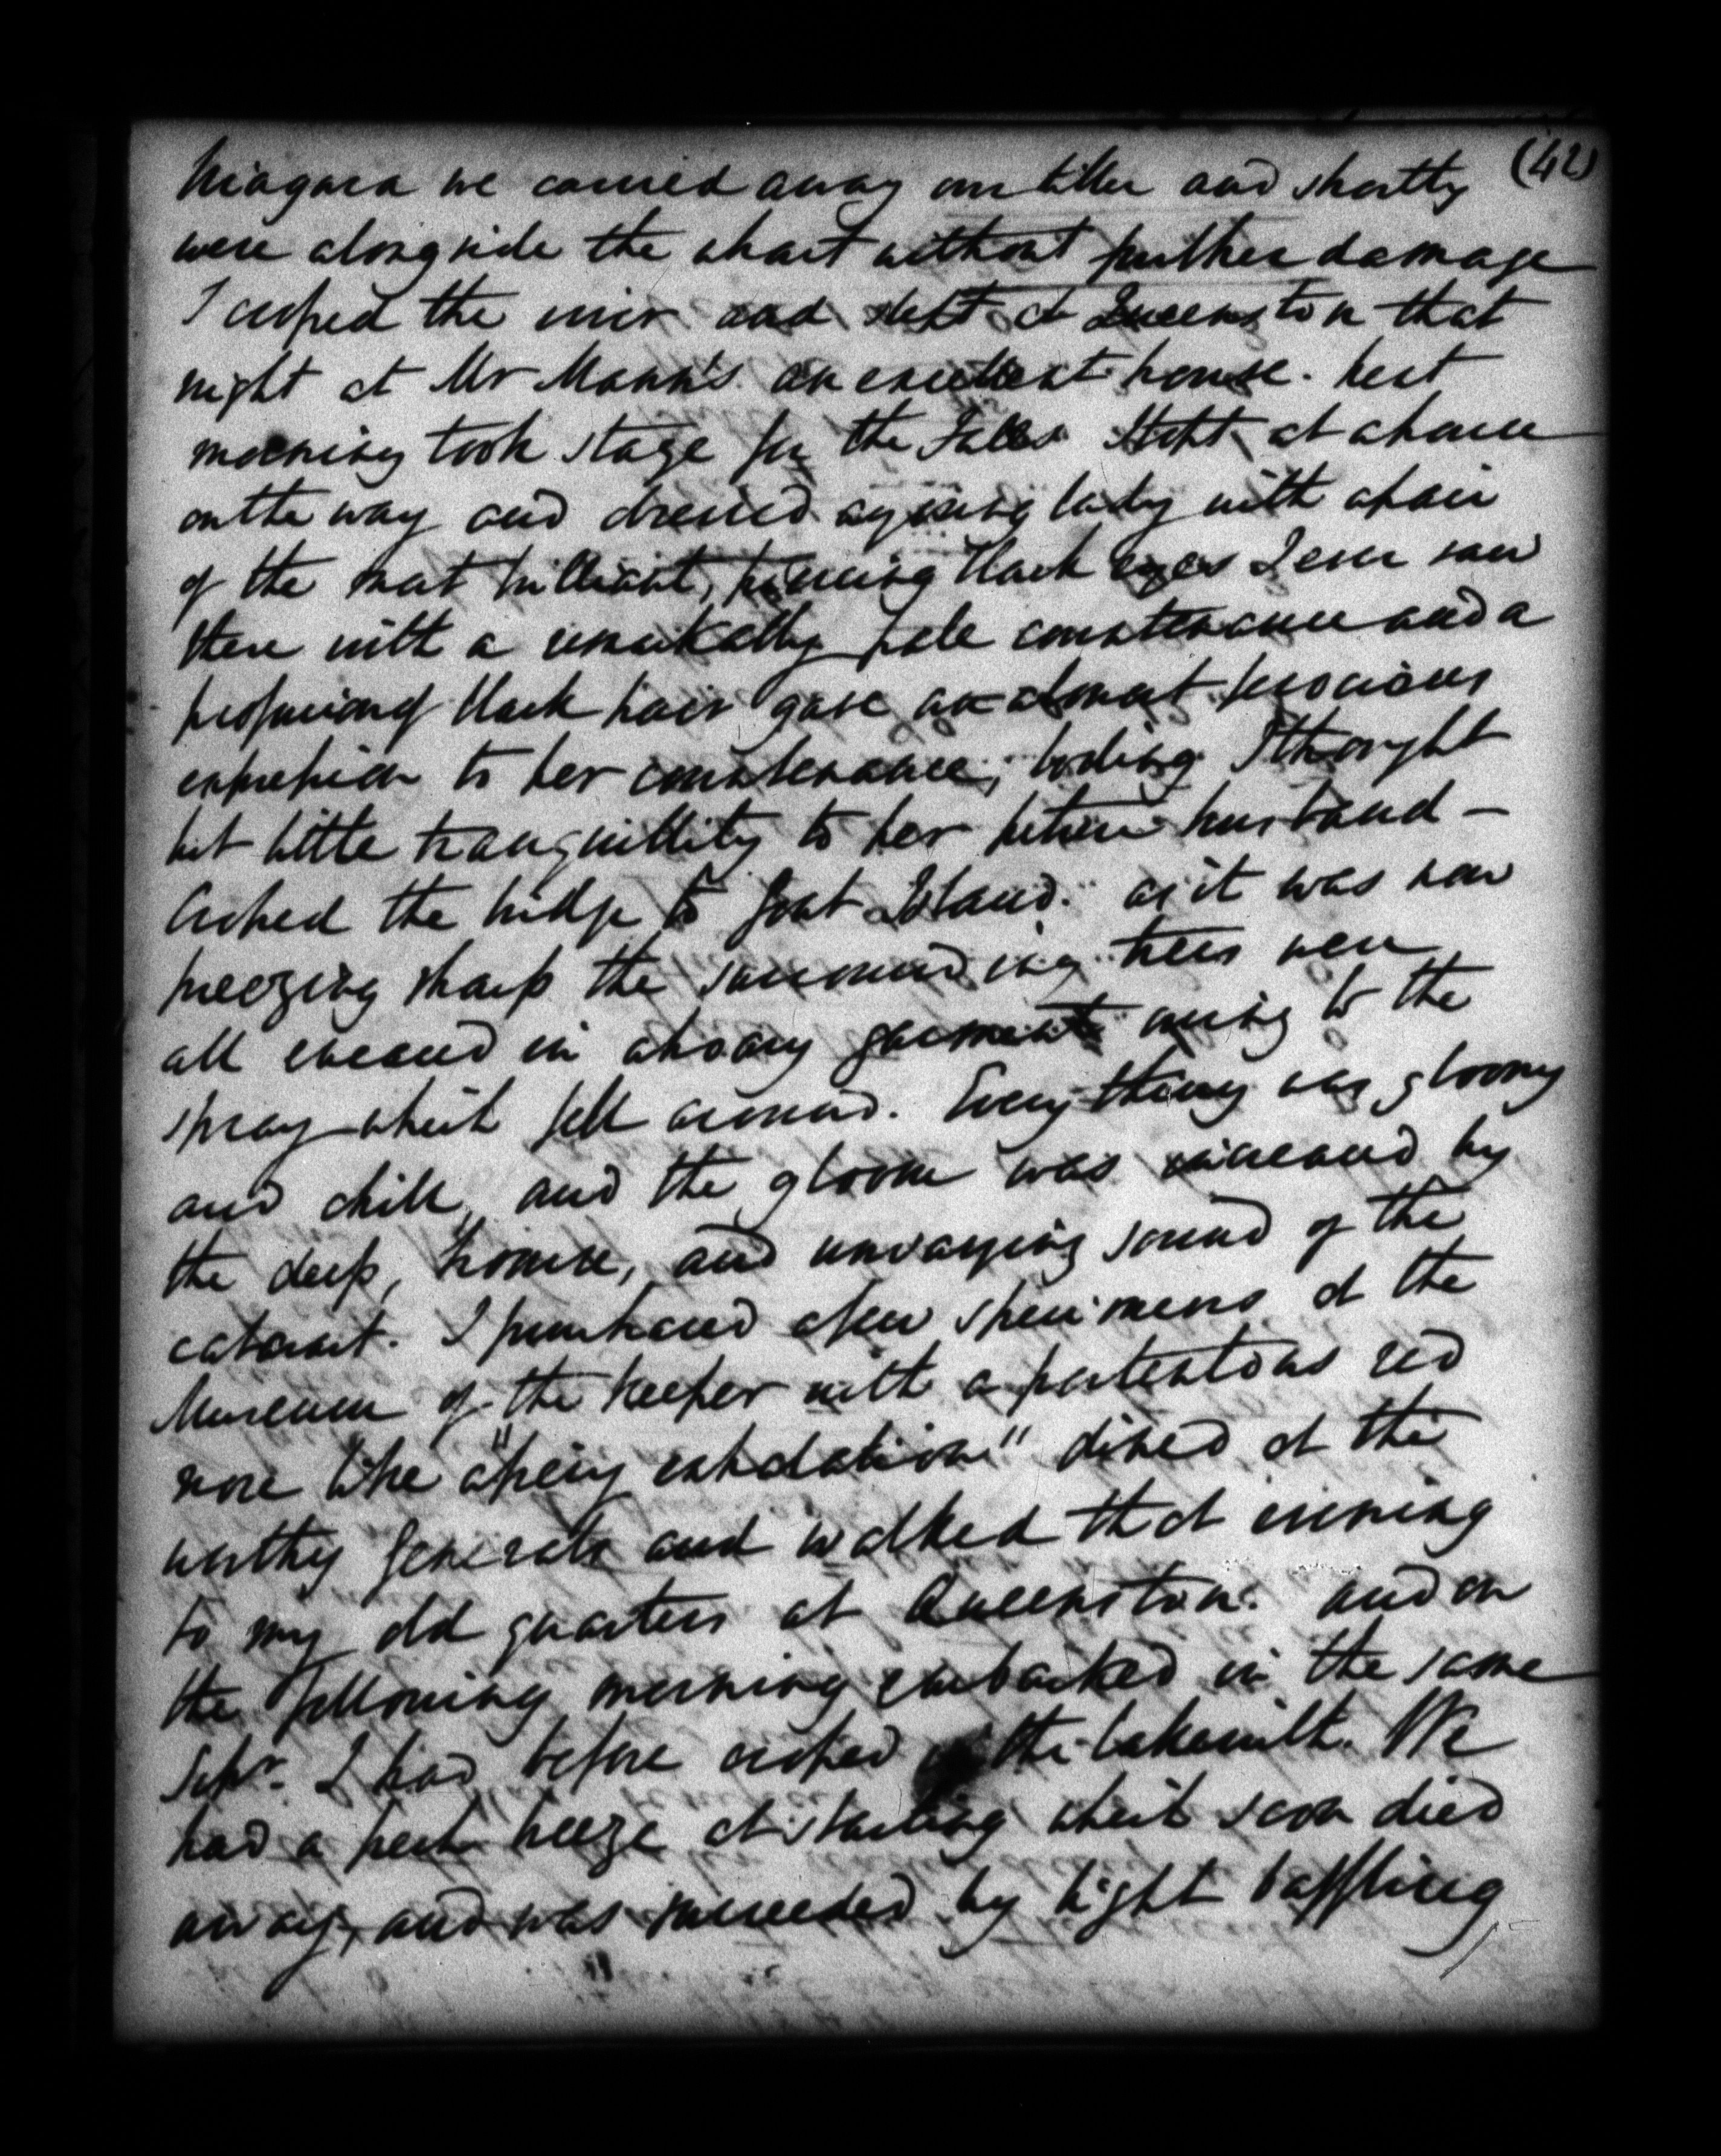 (42)
Niagara we carried away our tiller and shortly
were alongside the wharf without further damage
I crossed the river and slept at Queenston that
night at Mr Mann's an excellent house. Next
morning took stage for the Falls Stopt at a house
on the way and dressed a young lady with a pair
of the most brilliant, piercing black eyes I ever saw
these with a remarkably pale countenance and a
profusion of black hair gave an almost ferocious
expression to her countenance; boding I thought
but little tranquillity to her future husband —
Crossed the bridge to Goat Island. as it was now
freezing sharp the surrounding trees were
all encased in a hoary garment owing to the
spray which fell around. Every thing was gloomy
and chill, and the gloom was increased by
the deep, hoarse, and unvarying sound of the
cataract. I purchased a few specimens at the
Museum of the keeper with a portentous red
nose like "a fiery exhalation" dined at the
worthy Generals and walked that evening
to my old quarters at Queenston. and on
the following morning embarked in the same
Schr. I had before crossed the lake with. We
had a fresh breeze at starting which soon died
away, and was succeeded by light baffling